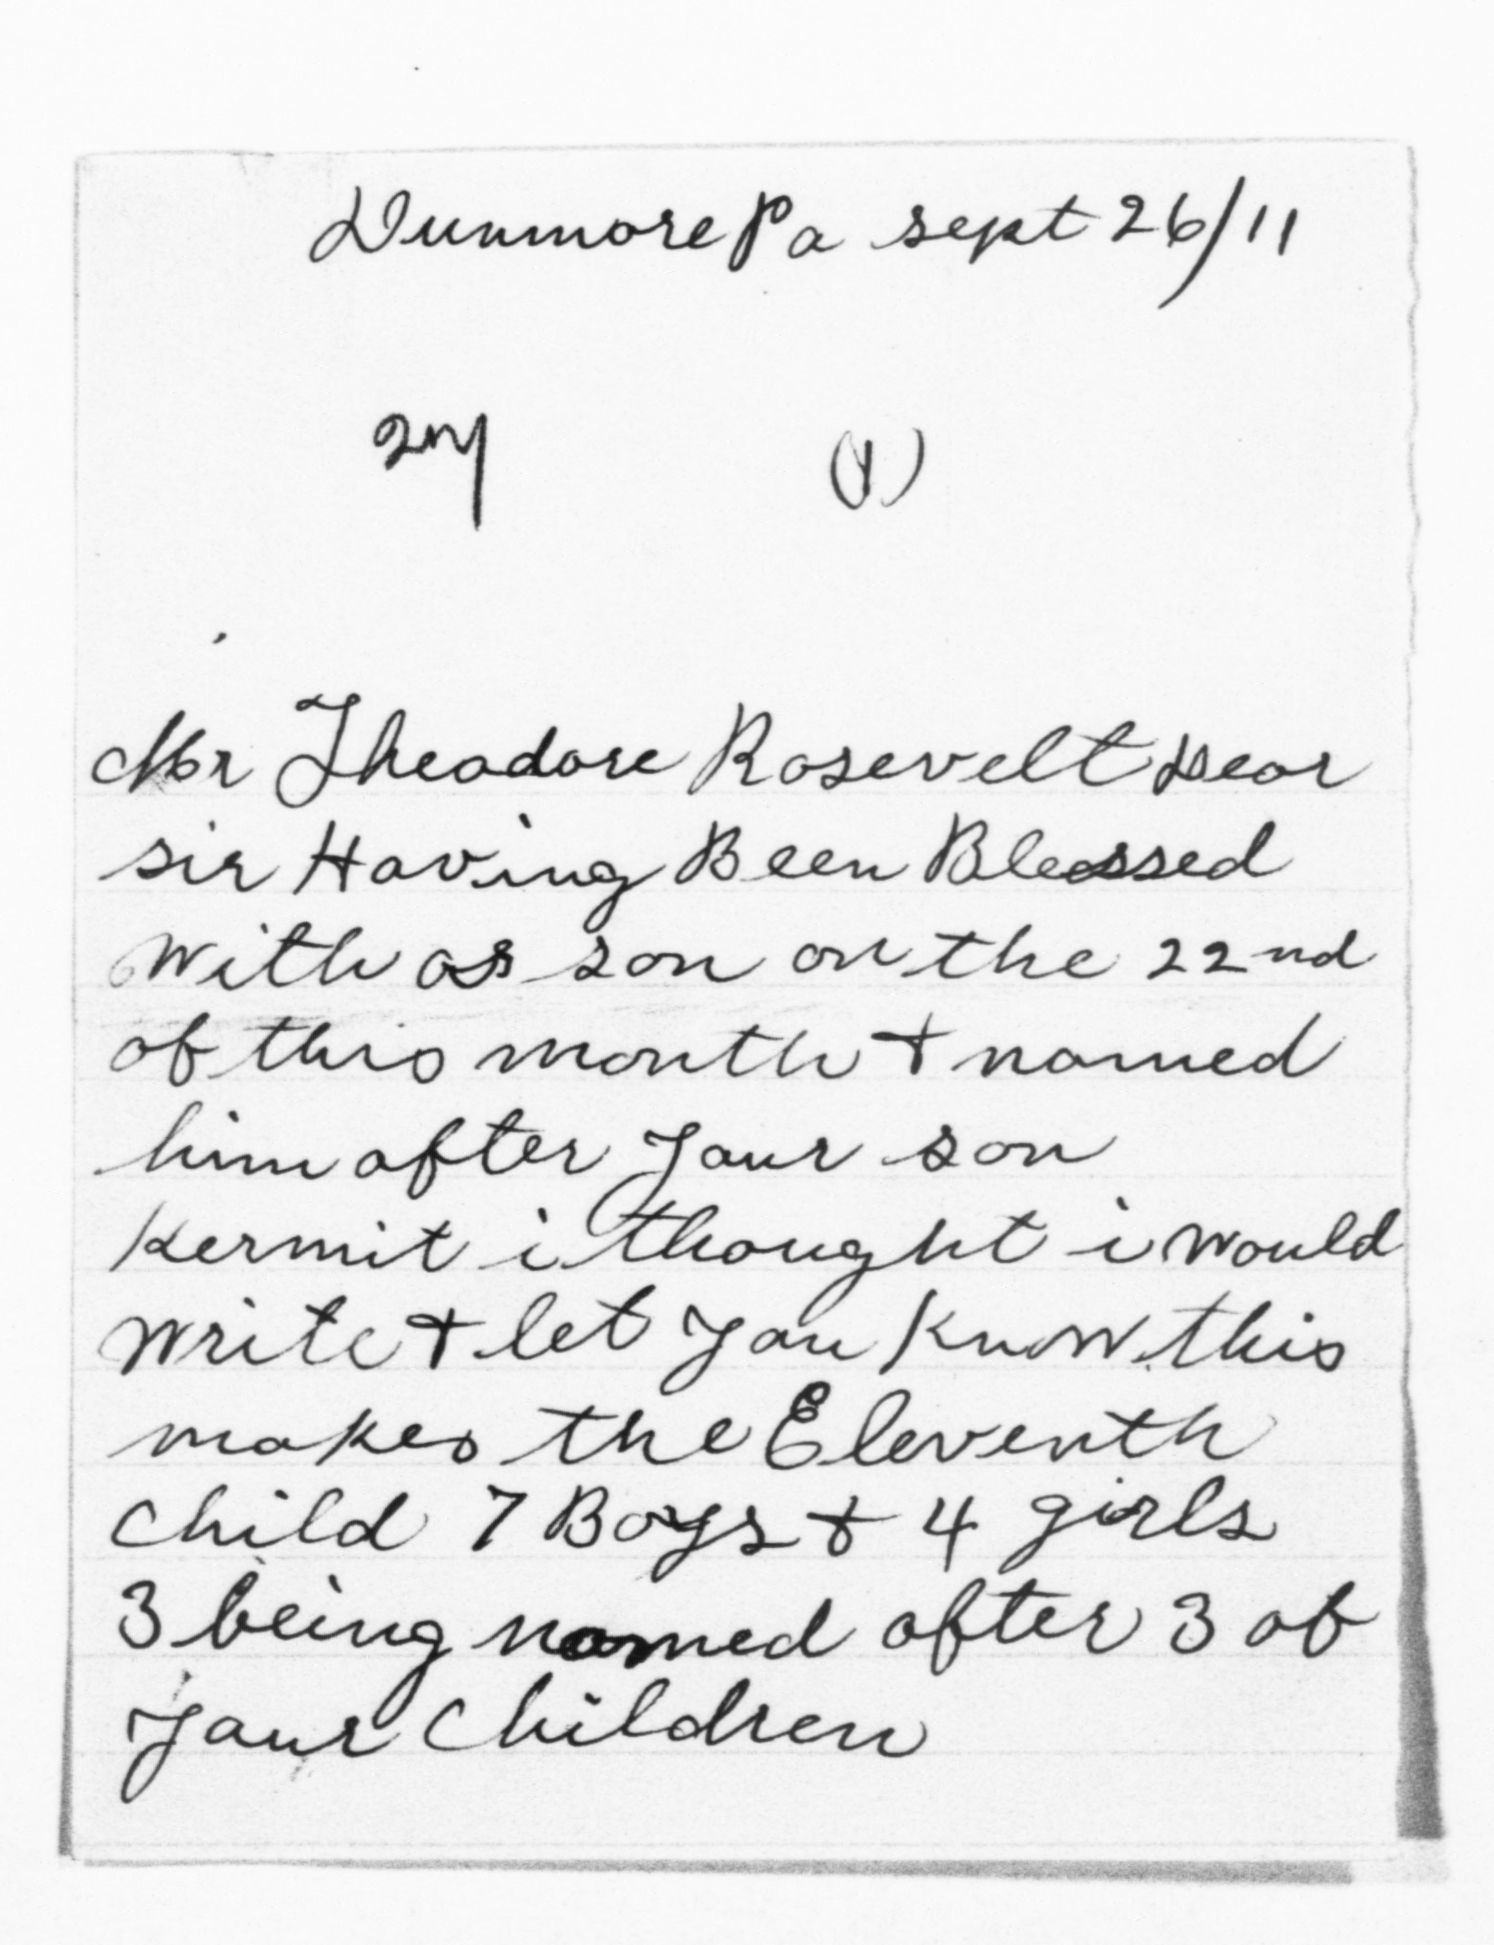 Dunmore Pa sept 26/11
(1)
Mr Theodore Rosevelt Dear
sir Having Been Blessed
with as son on the 22nd
of this month + named
him after your son
Kermit i thought i would
write + let you know this
makes the Eleventh
child 7 Boys + 4 girls
3 being named after 3 of
your children